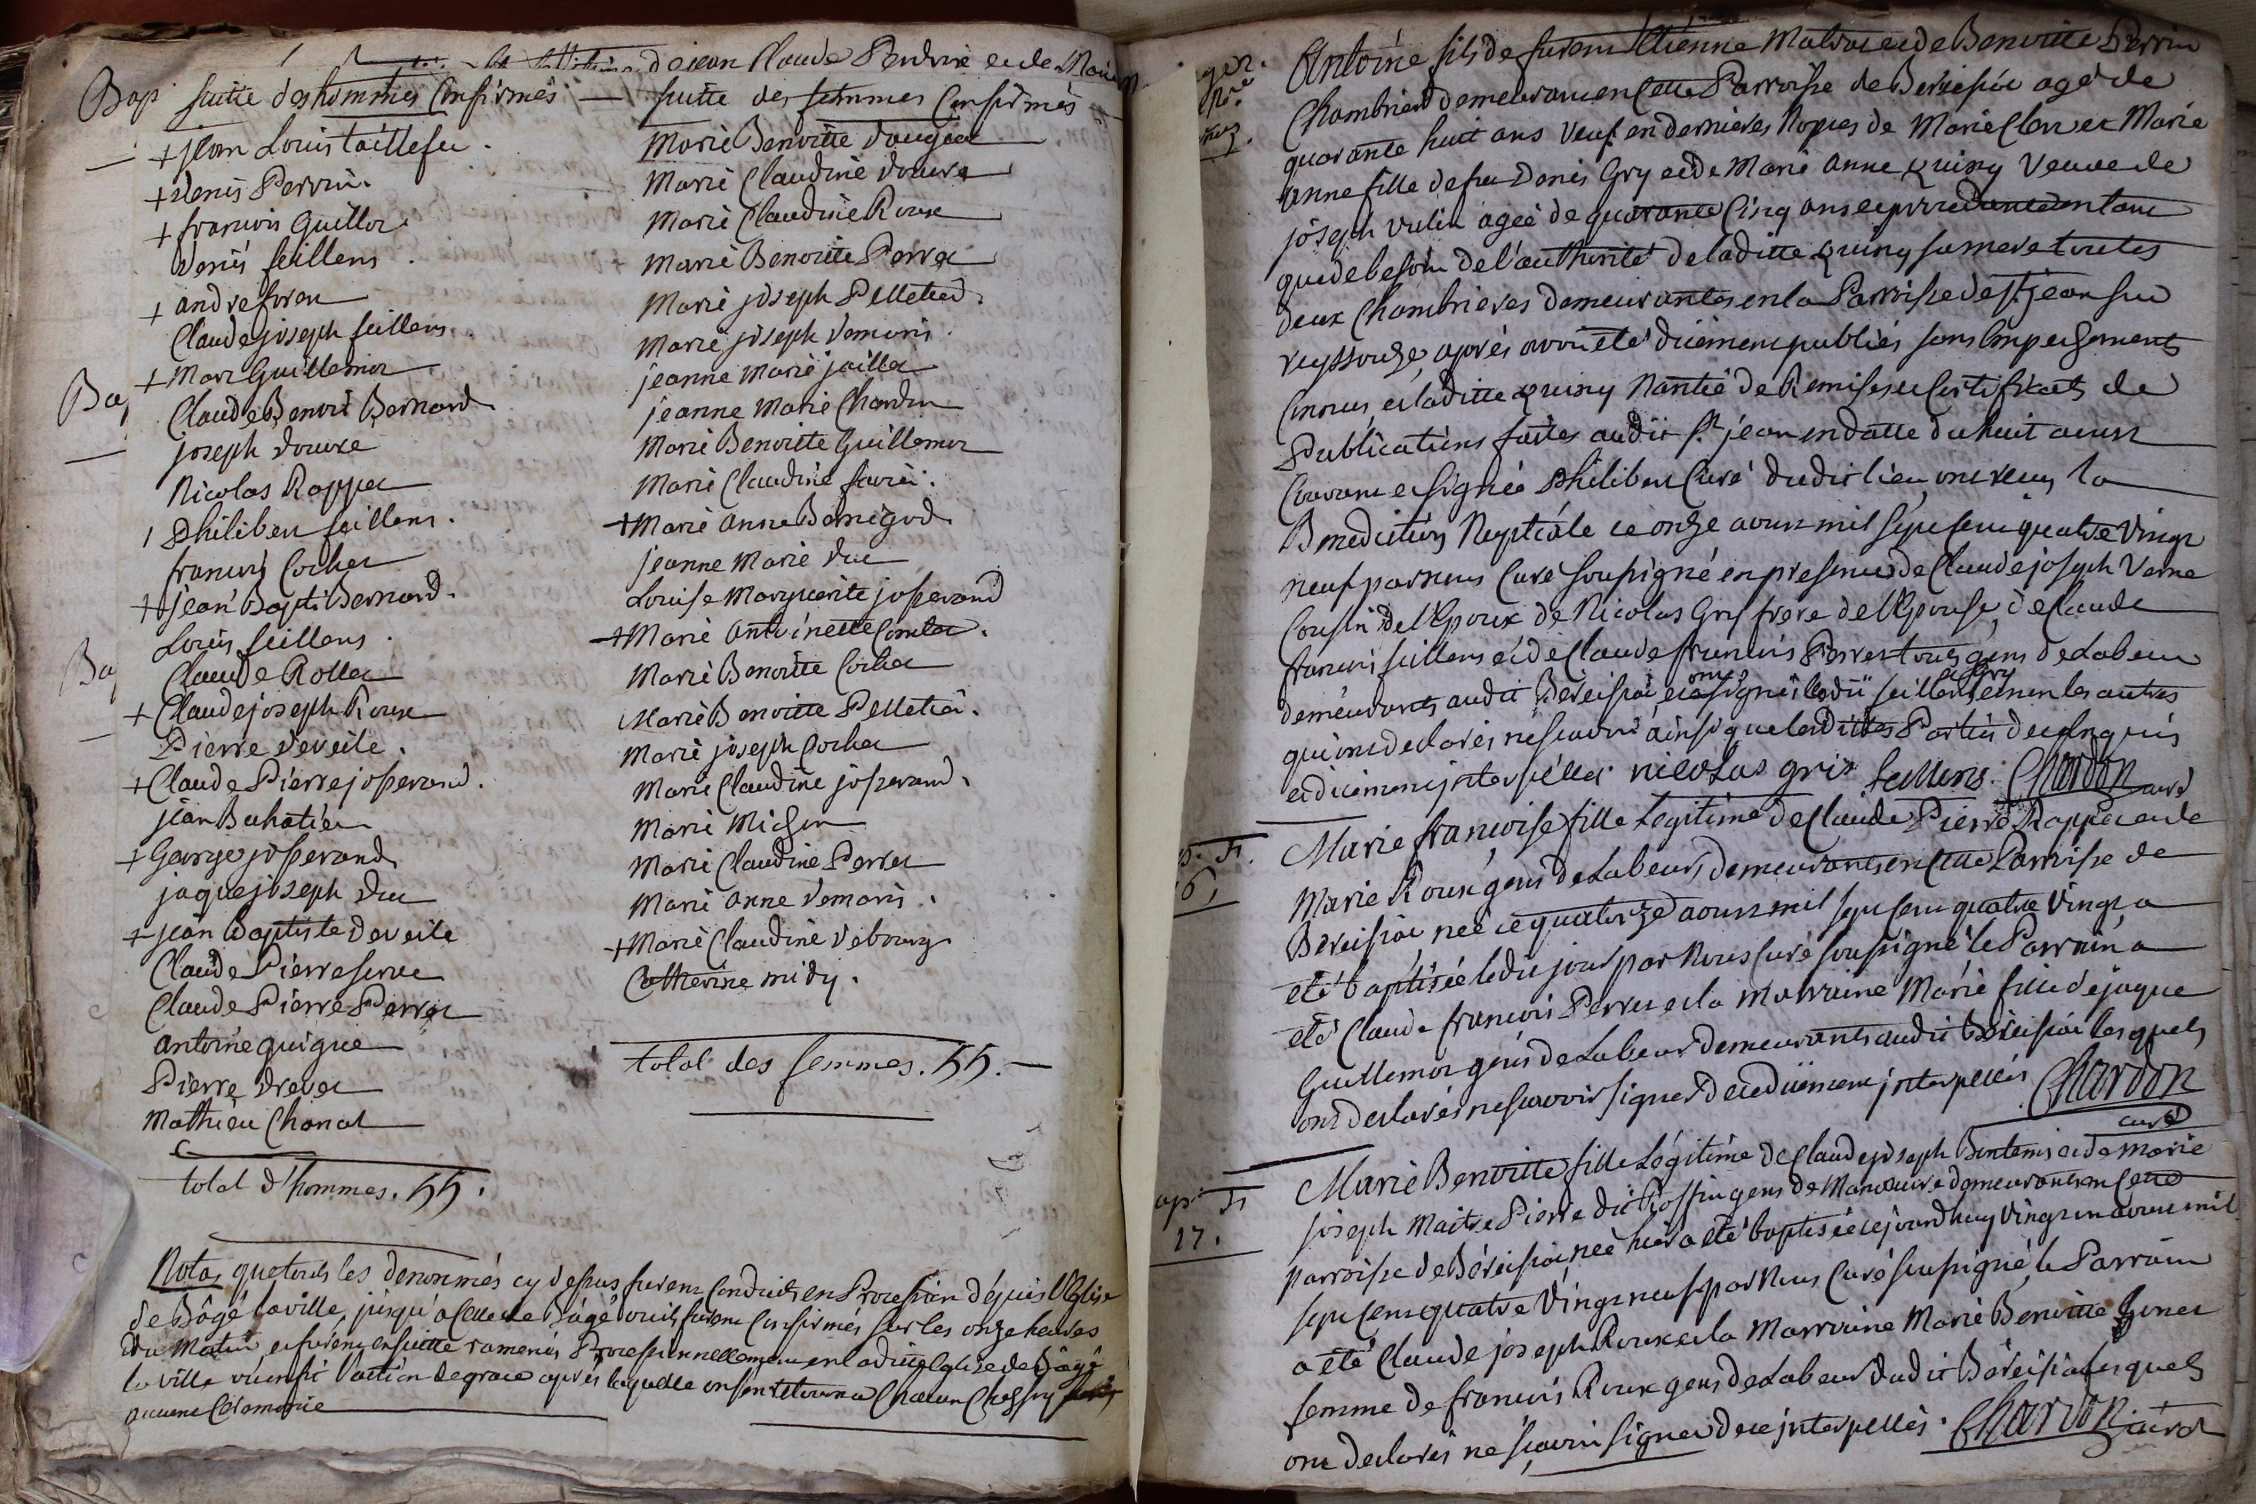 de jean Claude Perdrix et de Marie
Bap
suitte des hommes Confirmés — suitte des femmes Confirmés
+ jean Louis taillefer.
+ denis Perrin.
+ francois Guillot.
denis seillens.
+ andre foren
Claude joseph seillens.
+ Marc Guillemot
Claude Benoit Bernard
joseph douvre
Nicolas Rappet
Philibert seillens.
francois Cochet
+ jean Bapt Bernard.
Louis seillens.
Claude Rollet
+ Claude joseph Roux
Pierre deveile.
+ Claude Pierre josserand.
jean Buhatier
+ George josserand
jaque joseph duc
+ jean Baptiste deveile
Claude Pierre serve
Claude Pierre Perret
antoine guigue
Pierre drevet
Mathieu Chanat
total d'hommes. 55.
Marie Benoitte dougeat
Marie Claudine douvre
Marie Claudine Roux
Marie Benoitte Perret
Marie joseph Pelletier.
Marie joseph demoris.
jeanne Marie jaillet
jeanne Marie Chardon
Marie Benoitte Guillemot
Marie Claudine favier.
+ Marie anne Bernigod.
jeanne Marie duc
Louise Marguerite josserand
+ Marie antoinette Comtet.
Marie Benoitte Cochet
Marie Benoitte Pelletier.
Marie joseph Cochet
Marie Claudine josserand.
Marie Michon
Marie Claudine Perret
Marie anne demoris.
+ Marie Claudine debourg
Catherine midy.
total des femmes. 55.
Nota, que touts les denommés cy dessus furent Conduits en Procession dépuis l'Eglise
de Bâgé laville, jusqu'a Celle de Bâgé ou ils furent Confirmés sur les onze heures
du Matin et furent ensuitte ramenés Processionnellement en laditte Eglise de Bâgé
la ville ou on fit l'action de grace aprés laquelle on s'en retourna Chacun Chez soy sans
aucune Ceremonie
Antoine fils de furent Etienne Malvas et de Benoitte Perrin
Chambrier demeurant en Cette Parroisse de Bereisiat agé de
quarante huit ans Veuf en dernieres Nopces de Marie Clair et Marie
anne fille de feu Denis Gry et de Marie anne Quiny Veuve de
joseph vulin ageé de quarante Cinq ans et procedante en tant
que de besoin de l'authorité de laditte Quiny sa mere toutes
deux Chambrieres demeurantes en la Parroisse de St jean sur
reyssouze, aprés avoir été düement publiés sans Empechements
Connus, et laditte Quiny Nantie de Remises et Certificats de
Publications faites audit St jean en datte du huit aoust
Courant et signée Philibert Curé dudit lieu, ont reçu la
Benediction Nuptiale ce onze aoust mil sept cent quatre Vingt
neuf par nous Curé soussigné en presence de Claude joseph Verne
Cousin de l'Epoux de Nicolas Gry frere de l'Epouse, de Claude
francois seillens et de Claude francois Perret touts gens de Labeur
demeurants audit Bereisiat, ont signé ledit seillens et Gry et non les autres
qui ont declarés ne scavoir ainsi que lesdittes Parties de ce Enquis
et düement interpellés. nicolas grix seillens. Chardon curé
Marie francoise fille Legitime de Claude Pierre Rappet et de
Marie Roux gens de Labeurs demeurants en Cette Parroisse de
Bereisiat neé ce quatorze aoust mil sept cent quatre Vingt, a
eté baptiseé ledit jour par Nous Curé soussigné le Parrain a
eté Claude francois Perret et la Marraine Marie fille de jaque
Guillemot gens de Labeur demeurants audit Bereisiat lesquels
ont declarés ne scavoir signer de ce düement interpellés Chardon
curé
ap. F.
17.
Marie Benoitte fille Légitime de Claude joseph Bontems et de Marie
joseph Maitre Pierre dit Rossin gens de Manoeuvre demeurants en Cette
parroisse de Béreisiat neé hier a eté baptiseé cejourdhuy Vingt un aoust mil
sept Cent quatre Vingt neuf par Nous Curé soussigné, le Parrain
a eté Claude joseph Roux et la Marraine Marie Benoitte
femme de francois Roux gens de Labeur dudit Béreisiat lesquels
ont declarés ne scavoir signer de ce interpellés. Chardon curé